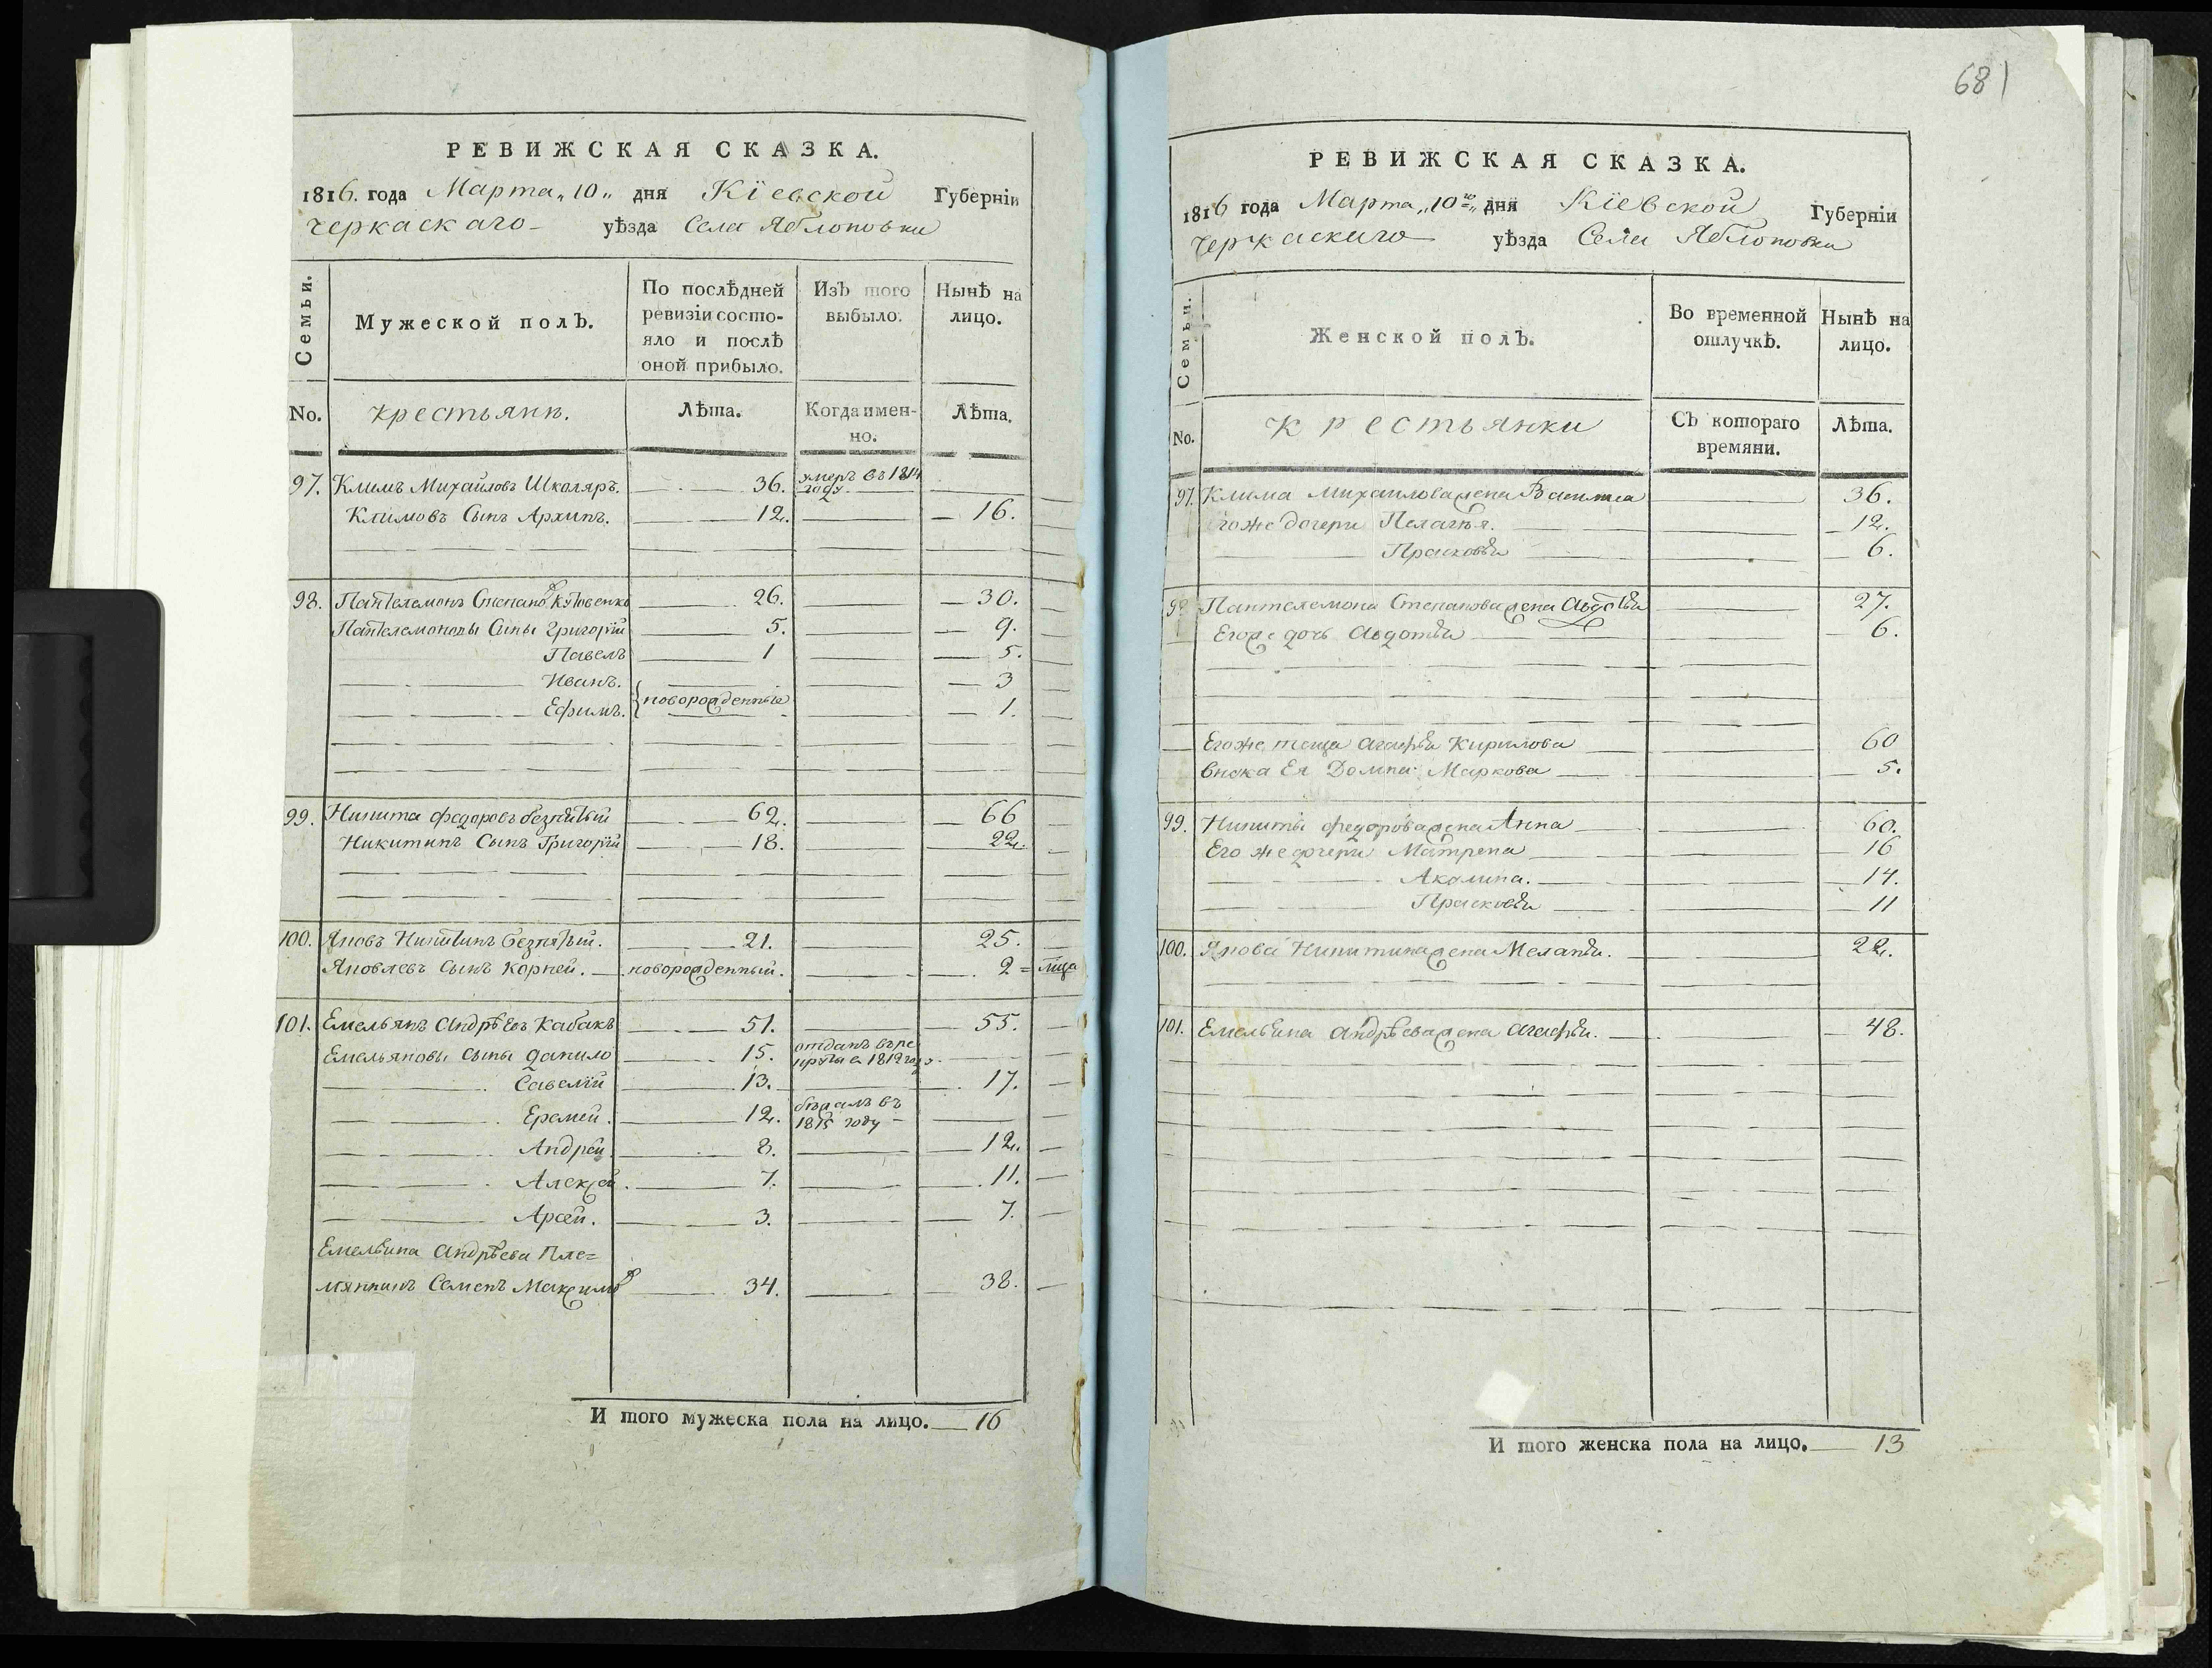 681
РЕВИЖСКАЯ СКАЗКА.
1816. года Марта „10„ дня Кіевской Губерніи
Черкаскаго уѣзда Села Яблоновки
Семьи.
Мужеской полъ.
По послѣдней ревизіи состояло и послѣ оной прибыло.
Изъ того выбыло.
Нынѣ на лицо.
No. Крестьянъ. Лѣта. Когда именно. Лѣта.
97. Климъ Михайловъ Школяръ. 36. умеръ въ 1814 году.
Климовъ Сынъ Архипъ. 12. 16.
98. Пантелемонъ Степановъ Кутовенко 26. 30.
Пантелемоновы Сыны Григорій 5. 9.
Павелъ 1 5.
Иванъ. 3
новорожденные
Ефимъ. 1.
99. Никита Федоровъ 62. 66
Никитинъ Сынъ Григорій 18. 22.
100. Яковъ Никитинъ 21. 25.
Яковлевъ Сынъ Корней. новорожденный. 2
101. Емельянъ Андрѣевъ Кабакъ 51. 55.
Емельяновы Сыны Данило 15. отданъ въ рекруты в 1812 году.
Савелій 13. 17.
Еремей. 12. бѣжалъ въ 1815 году
Андрей 8. 12.
Алексей. 7. 11.
Арсей. 3. 7.
Емельяна Андрѣева Пле=
мянникъ Семенъ Максимовъ 34. 38.
И того мужеска пола на лицо. 16
РЕВИЖСКАЯ СКАЗКА.
1816 года Марта „10го„ дня Кіевской Губерніи
Черкаскаго уѣзда Села Яблоновки
Семьи.
Женской полъ.
Во временной отлучкѣ.
Нынѣ на лицо.
No. Крестьянки Съ котораго времяни. Лѣта.
97. Клима Михайлова жена 36.
Егоже дочери Пелагѣя. 12.
Прасковья 6.
98. Пантелемона Степанова жена Авдотья 27.
Егоже дочь Авдотья 6.
Егоже теща Агафья Кирилова 60
Внука Ея Домна Маркова 5.
99. Никиты Федорова жена Анна 60.
Его же дочери Матрена 16
Акилина. 14.
Прасковья 11
100. Якова Никитина жена Меланья. 22.
101. Емельяна Андрѣева жена Агафья. 48.
И того женска пола на лицо. 13